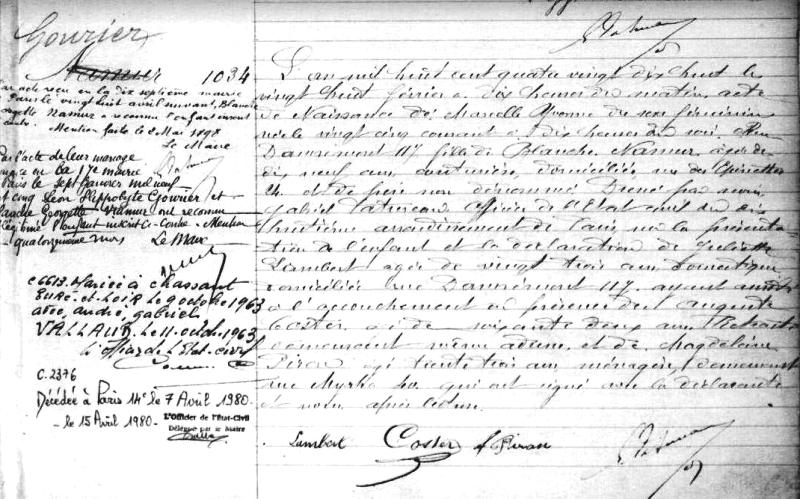 Gourier
Namur 1034
acte reçu en la dix septième mairie
Paris le vingt huit avril suivant, Blanche
Georgette Namur a reconnu l'enfant inscrit
contre. Mention faite le 2 Mai 1898
Le Maire
Par l'acte de leur mariage
en la 17e mairie
Paris le sept Janvier mil neuf
cent cinq Léon Hippolyte Gourier et
Blanche Georgette Namur ont reconnu
légitimé l'enfant inscrit ci-contre. Mention
Le Maire
C 6613. Mariée à Chassant
Eure-et-Loir le 9 octobre 1963
avec André, Gabriel
VALLAUD. Le 11. octob. 1963
L'Officier de l'état-civil
C. 2376
Décédée à Paris 14e le 7 Avril 1980-
- le 15 Avril 1980-
L'Officier de l'Etat-Civil
Délégué par le Maire
L'an mil huit cent quatre vingt dix huit le
vingt huit février à dix heures du matin acte
de Naissance de Marcelle Yvonne du sexe féminin
née le vingt cinq courant à dix heures du soir, rue
Damrémont 117 fille de Blanche Namur, âgée de
dix neuf ans couturière, domiciliée rue des
24. et de père non dénommé Dressé par nous,
Gabriel Officier de l'Etat civil du dix
huitième arrondissement de Paris sur la présenta-
tion de l'enfant et la déclaration de Juliette
Lambert âgée de vingt trois ans domestique
domiciliée rue Damrémont 117. ayant assisté
à l'accouchement en présence de Auguste
Coster, âgé de soixante deux ans
demeurant même adresse et de Magdeleine
Piron âgée trente trois ans ménagère, demeurant
rue Myrha qui ont signé avec la déclarante
et nous après lecture.
Lambert Coster f Piron